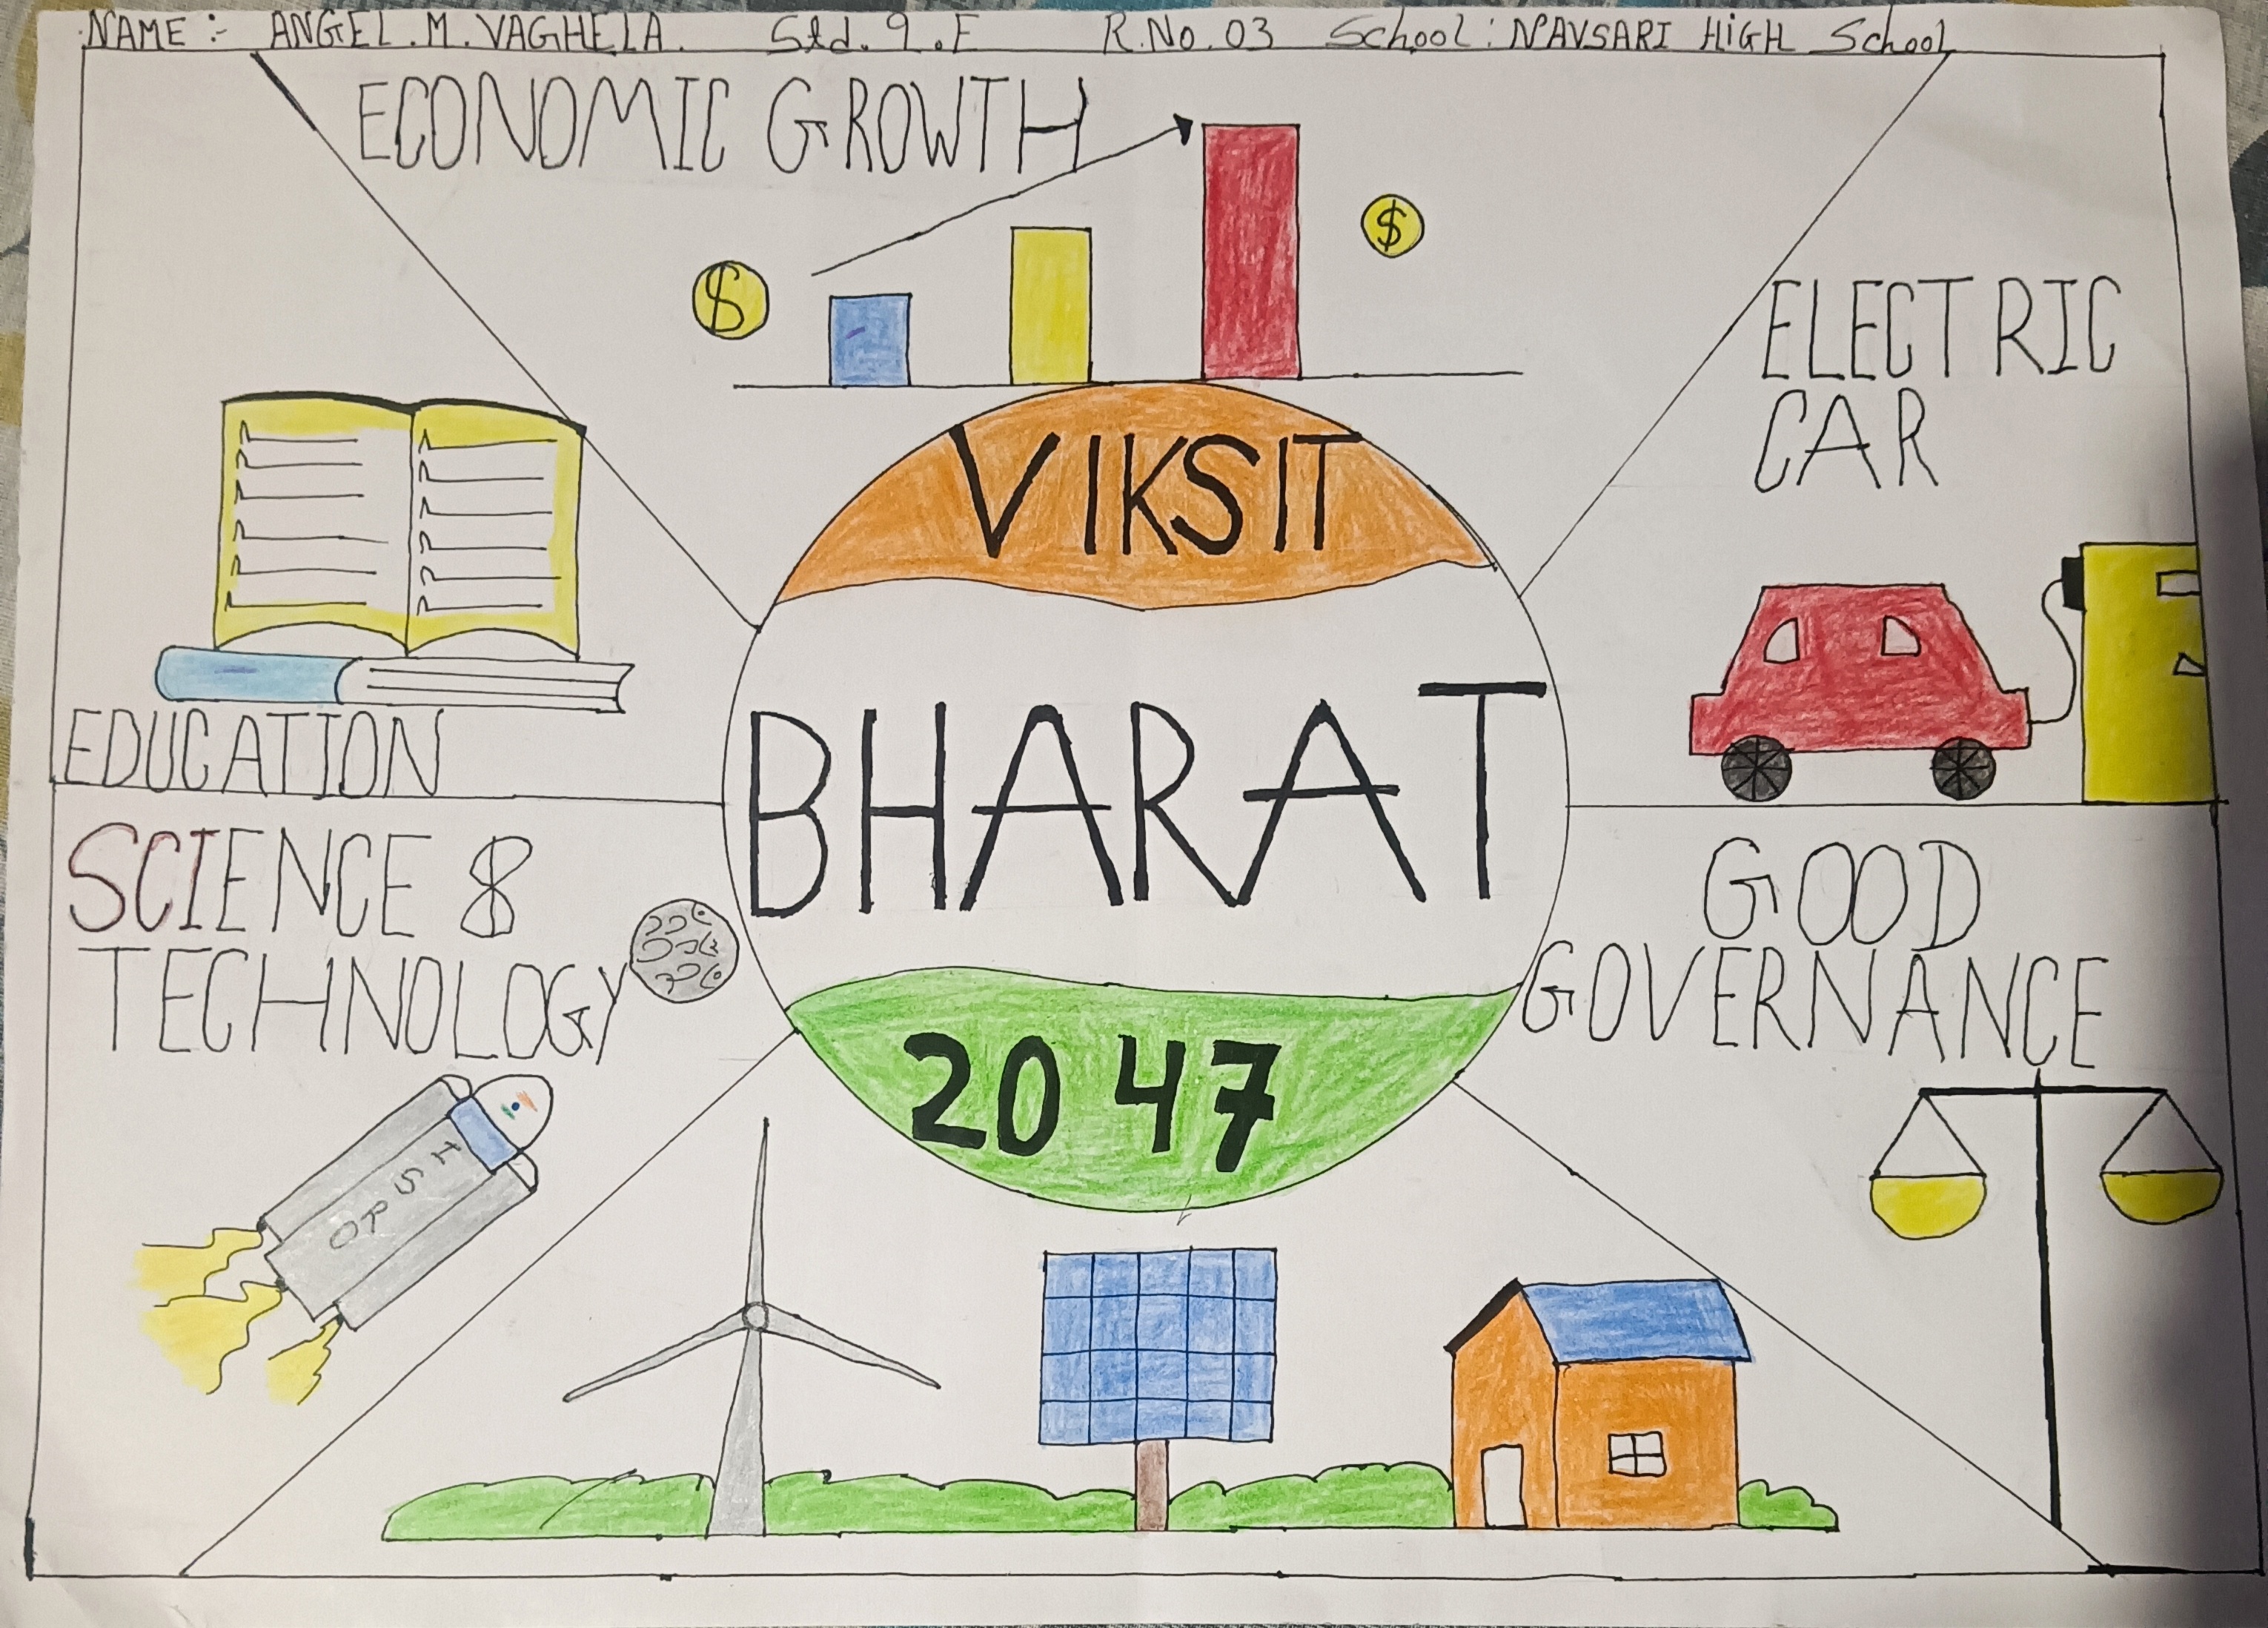 NAME :- ANGEL.M.VAGHELA. Std. 9.E R.No.03 School: NAVSARI HIGH School
ECONOMIC GROWTH
$
$
ELECTRIC
CAR
VIKSIT
BHARAT
2047
EDUCATION
SCIENCE &
TECHNOLOGY
GOOD
GOVERNANCE